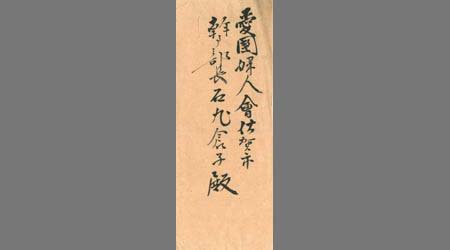 愛國婦人會佐賀市
幹部長石丸倉子殿